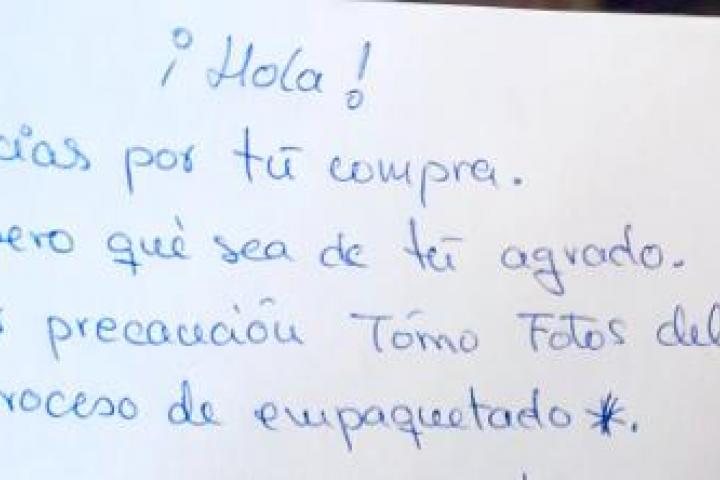 ¡Hola!
cias por tú compra.
pero qué sea de tú agrado.
precaución Tómo Fotos del
roceso de empaquetado *.